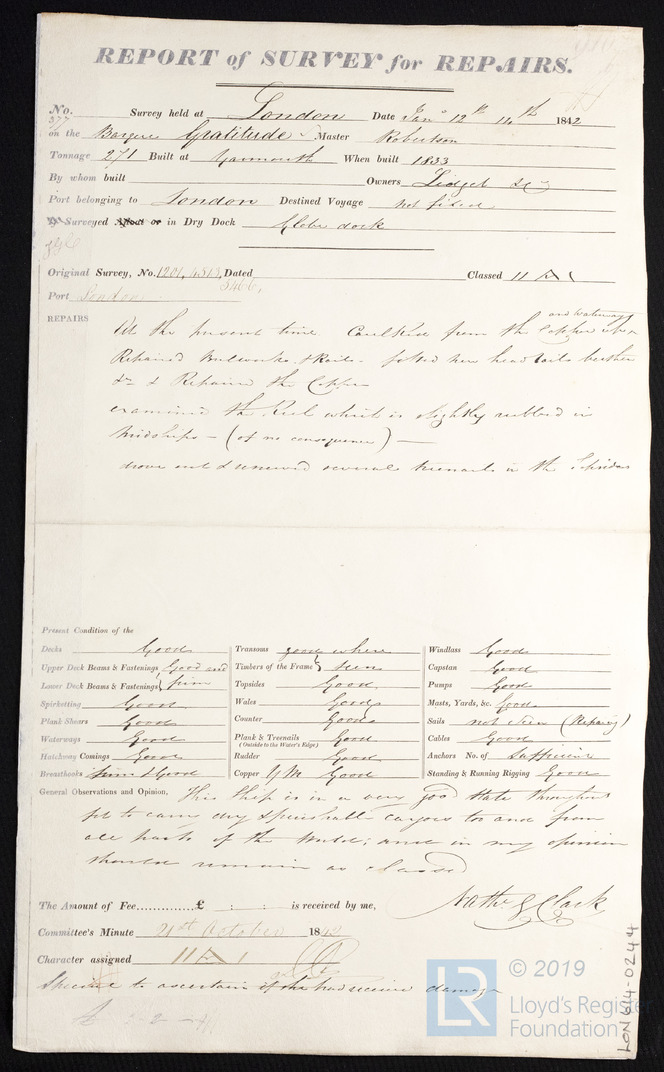 REPORT of SURVEY for REPAIRS.
No. 377 Survey held at London Date Jany 12th 14th 1842
on the Barque Gratitude Master Robertson
Tonnage 271 Built at Yarmouth When built 1833
By whom built Owners Lidget &c
Port belonging to London Destined Voyage not fixed
Surveyed Afloat or in Dry Dock Globe dock
Original Survey, No. 1201, 4513, Dated Classed 11 A 1
5466,
Port London
REPAIRS
and waterways
At the present time Caulked from the Copper
Repaired Bulwarks & Rails fitted new headrails
& Repaired the Copper
examined the Keel which is slightly rubbed in
Midships — (of no consequence) —
drove out & renewed several treenails in the
Present Condition of the
Decks Good
Upper Deck Beams & Fastenings Good and
Lower Deck Beams & Fastenings firm
Spirketting Good
Plank Shears Good
Waterways Good
Hatchway Comings Good
Breasthooks firm & Good
Transoms good where
Timbers of the Frame seen
Topsides Good
Wales Good
Counter Good
Plank & Treenails Good
(Outside to the Water's Edge)
Rudder Good
Copper YM Good
Windlass Good
Capstan Good
Pumps Good
Masts, Yards, &c. Good
Sails not seen (Repairing)
Cables Good
Anchors No. of Sufficient
Standing & Running Rigging Good
General Observations and Opinion. This Ship is in a very good state throughout
fit to carry dry & perishable cargoes to and from
all parts of the World; and in my opinion
should remain as classed
The Amount of Fee............£ : : is received by me, Nathl G Clark
Committee's Minute 21st October 1842
Character assigned 11 A 1
Special to ascertain if she had received damage
© 2019
Lloyd's Register
Foundation
LON 614-0244